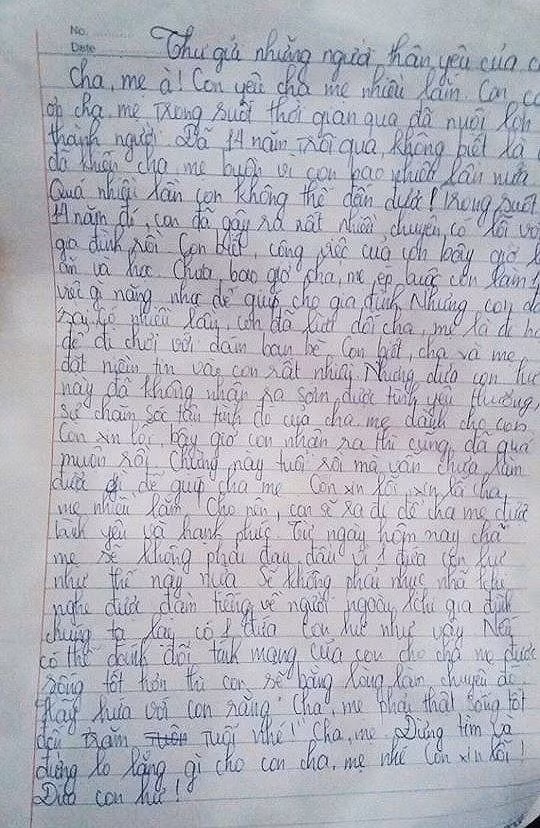 No. ..........
Date
Thư gửi những người thân yêu của c
Cha, mẹ à! Con yêu cha mẹ nhiều lắm. Con cả
ơn cha, mẹ trong suốt thời gian qua đã nuôi lớn
thành người. Đã 14 năm trôi qua, không biết là
đã khiến cha, mẹ buồn vì con bao nhiêu lần nữa
Quá nhiều lần con không thể đếm được! Trong suốt
14 năm đó, con đã gây ra rất nhiều chuyện có lỗi với
gia đình rồi. Con biết, công việc của con bây giờ l
ăn và học. Chưa bao giờ cha, mẹ ép buộc con làm 1
việc gì nặng nhọc để giúp cho gia đình. Nhưng con đã
nhiều lần, con đã lừa dối cha, mẹ là đi họ
để đi chơi với đám bạn bè. Con biết, cha và mẹ
đặt niềm tin vào con rất nhiều. Nhưng đứa con hư
này đã không nhận ra sớm được tình yêu thương,
sự chăm sóc tận tình đó của cha, mẹ dành cho con.
Con xin lỗi, bây giờ con nhận ra thì cũng đã quá
muộn rồi. Chừng này tuổi rồi mà vẫn chưa làm
được gì để giúp cha mẹ. Con xin lỗi, xin lỗi cha,
mẹ nhiều lắm. Cho nên, con sẽ ra đi để cha mẹ được
bình yên và hạnh phúc. Từ ngày hôm nay cha
mẹ sẽ không phải đau đầu vì 1 đứa con hư
như thế này nữa. Sẽ không phải nhục nhã khi
nghe được đàm tiếng về người ngoài, khi gia đình
chúng ta lại có 1 đứa con hư như vậy. Nếu
có thể đánh đổi tính mạng của con cho cha mẹ được
sống tốt hơn thì con sẽ bằng lòng làm chuyện đó.
Hãy hứa với con rằng "Cha, mẹ phải thật sống tốt
đến trăm tuổi nhé!" Cha, mẹ. Đừng tìm và
đừng lo lắng gì cho con cha, mẹ nhé. Con xin lỗi!
Đứa con hư!